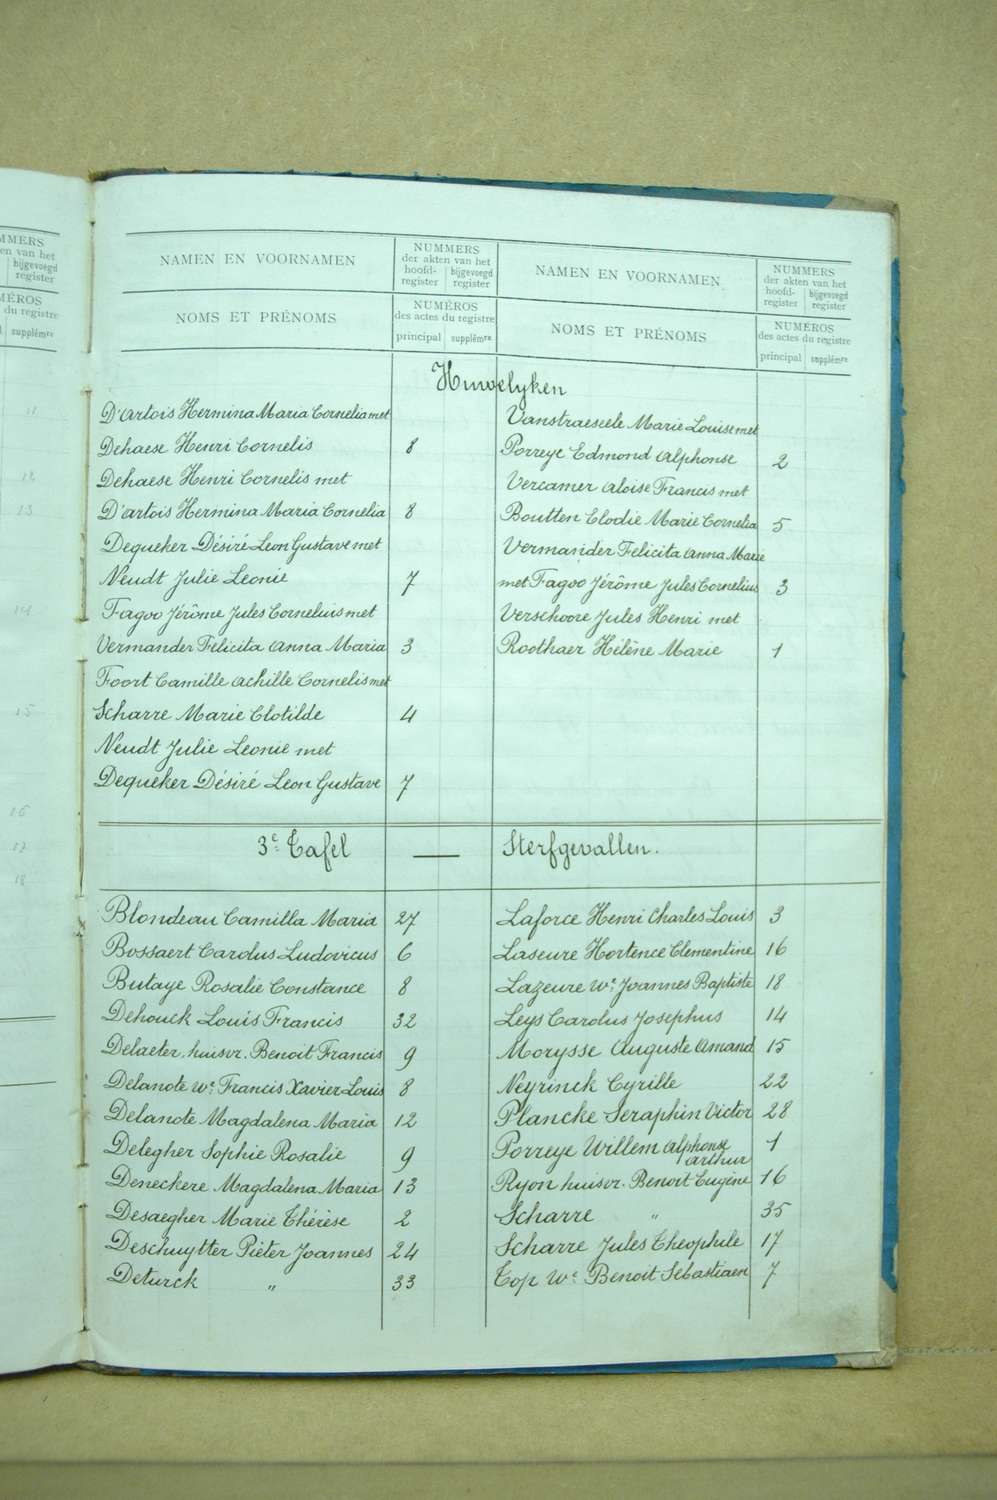 MMERS
en van het
bijgevoegd
register
MÉROS
du registre
l supplémre
11
12
13
14
15
16
17
18
NAMEN EN VOORNAMEN
NUMMERS
der akten van het
hoofd-
register
bijgevoegd
register
NOMS ET PRÉNOMS
NUMÉROS
des actes du registre
principal supplémre
NAMEN EN VOORNAMEN
NUMMERS
der akten van het
hoofd-
register
bijgevoegd
register
NOMS ET PRÉNOMS
NUMÉROS
des actes du registre
principal supplémre
Huwelyken
D'artois Hermina Maria Cornelia met
Dehaese Henri Cornelis 8
Dehaese Henri Cornelis met
D'artois Hermina Maria Cornelia 8
Dequeker Désiré Leon Gustave met
Neudt Julie Leonie 7
Fagoo Jérôme Jules Cornelius met
Vermander Felicita Anna Maria 3
Foort Camille Achille Cornelis met
Scharre Marie Clotilde 4
Neudt Julie Leonie met
Dequeker Désiré Leon Gustave 7
Vanstraeseele Marie Louise met
Porreye Edmond Alphonse 2
Vercamer Aloise Francis met
Boutten Clodie Marie Cornelia 5
Vermander Felicita Anna Marie
met Fagoo Jérôme Jules Cornelius 3
Verschoore Jules Henri met
Roothaer Hélène Marie 1
3e Tafel — Sterfgevallen.
Blondeau Camilla Maria 27
Bossaert Carolus Ludovicus 6
Butaye Rosalie Constance 8
Dehouck Louis Francis 32
Delaeter, huisvr. Benoit Francis 9
Delanote we Francis Xavier Louis 8
Delanote Magdalena Maria 12
Delegher Sophie Rosalie 9
Deneckere Magdalena Maria 13
Desaegher Marie Thérèse 2
Deschuytter Pieter Joannes 24
Deturck " 33
Laforce Henri Charles Louis 3
Laseure Hortence Clementine 16
Lazeure We Joannes Baptiste 18
Leys Carolus Josephus 14
Morysse Auguste Amand 15
Neyrinck Cyrille 22
Plancke Seraphin Victor 28
Porreye Willem Alphonse 1
Arthur
Ryon huisvr. Benoit Eugène 16
Scharre " 35
Scharre Jules Theophile 17
Top We Benoit Sebastiaen 7